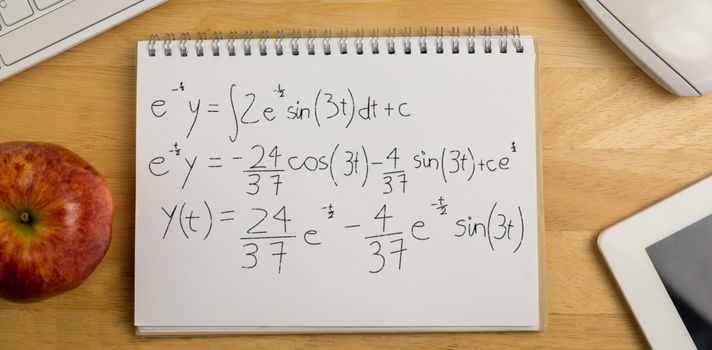 e^{-t/2} y = ∫2e^{-t/2} sin(3t)dt+c
e^{-t/2} y = -24/37 cos(3t)-4/37 sin(3t)+ce^{t/2}
y(t) = 24/37 e^{-t/2} - 4/37 e^{-t/2} sin(3t)